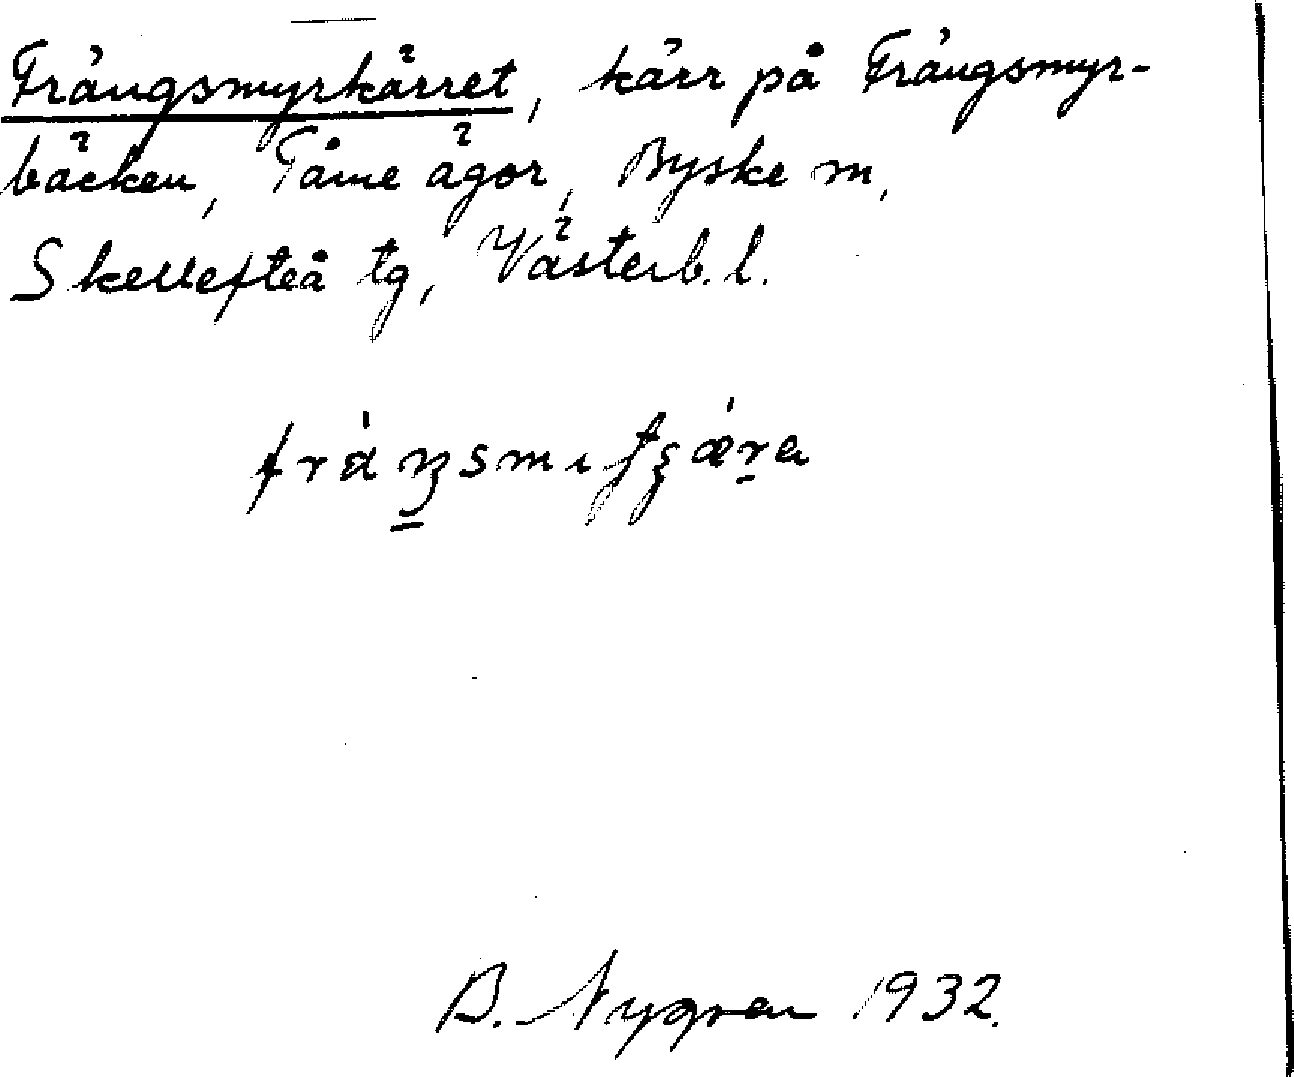 Frängsmyrkärret, kärr på Frängsmyr-
bäcken, Tåme ägor, Byske m,
Skellefteå tg, Västerb. l.
B. Nygren 1932.